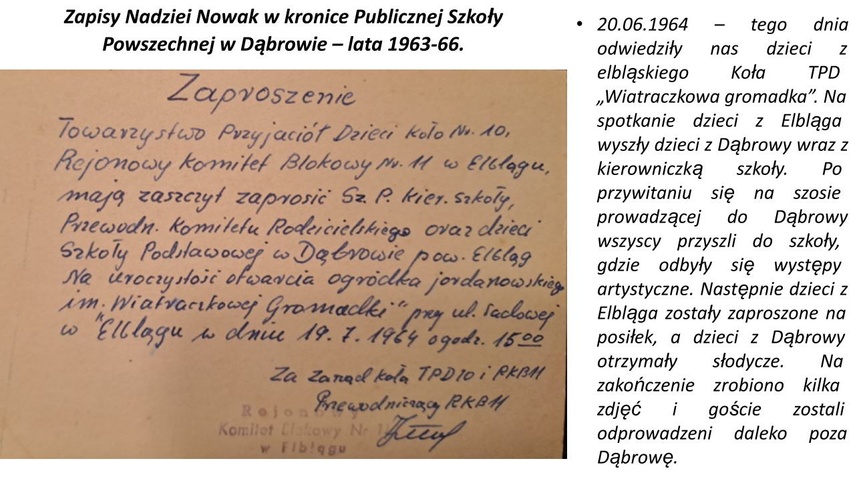 Zapisy Nadziei Nowak w kronice Publicznej Szkoły
Powszechnej w Dąbrowie – lata 1963-66.
Zaproszenie
Towarzystwo Przyjaciół Dzieci Koło Nr. 10,
Rejonowy Komitet Blokowy Nr. 11 w Elblągu,
mają zaszczyt zaprosić Sz. P. Kier. szkoły,
Przewodn. Komitetu Rodzicielskiego oraz dzieci
Szkoły Podstawowej w Dąbrowie pow. Elbląg
Na uroczystość otwarcia ogródka jordanowskiego
im. "Wiatraczkowej Gromadki" przy ul. Sadowej
w Elblągu w dniu 19.7.1964 o godz. 15⁰⁰
Za Zarząd koła TPD 10 i RKB 11
Przewodniczący RKB 11
Rejonowy
Komitet Blokowy Nr 11
w Elblągu
• 20.06.1964 – tego dnia
odwiedziły nas dzieci z
elbląskiego Koła TPD
„Wiatraczkowa gromadka”. Na
spotkanie dzieci z Elbląga
wyszły dzieci z Dąbrowy wraz z
kierowniczką szkoły. Po
przywitaniu się na szosie
prowadzącej do Dąbrowy
wszyscy przyszli do szkoły,
gdzie odbyły się występy
artystyczne. Następnie dzieci z
Elbląga zostały zaproszone na
posiłek, a dzieci z Dąbrowy
otrzymały słodycze. Na
zakończenie zrobiono kilka
zdjęć i goście zostali
odprowadzeni daleko poza
Dąbrowę.